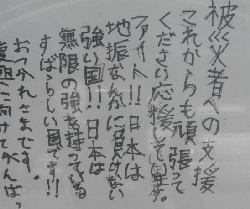 被災者への支援
これからも頑張って
ください応援しています。
ファイト!!日本は
地振なんかに負けない
強い国!!日本は
無限の強を持ってる
すばらしい国です!!
おつかれさまです。
復興に向けてがんばっ